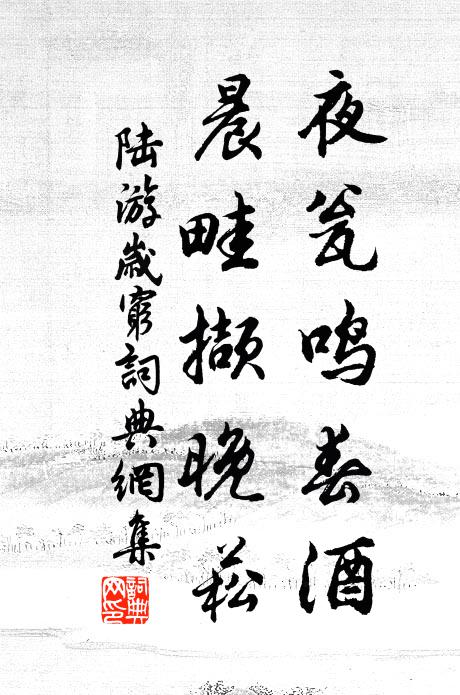 夜瓮鸣春酒
晨畦撷晚菘
陆游岁穷詞典網集
詞典
网印